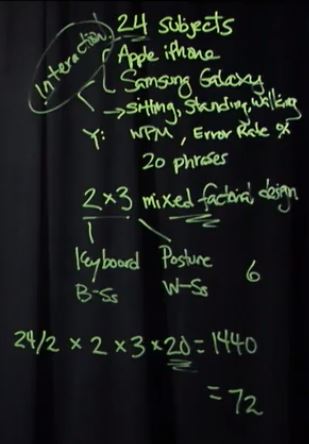 Interaction
24 subjects
Apple iPhone
Samsung Galaxy
→ Sitting, Standing, Walking
Y: WPM, Error Rate %
20 phrases
2×3 mixed factorial design
Keyboard Posture 6
B-Ss W-Ss
24/2 × 2 × 3 × 20 = 1440
= 72